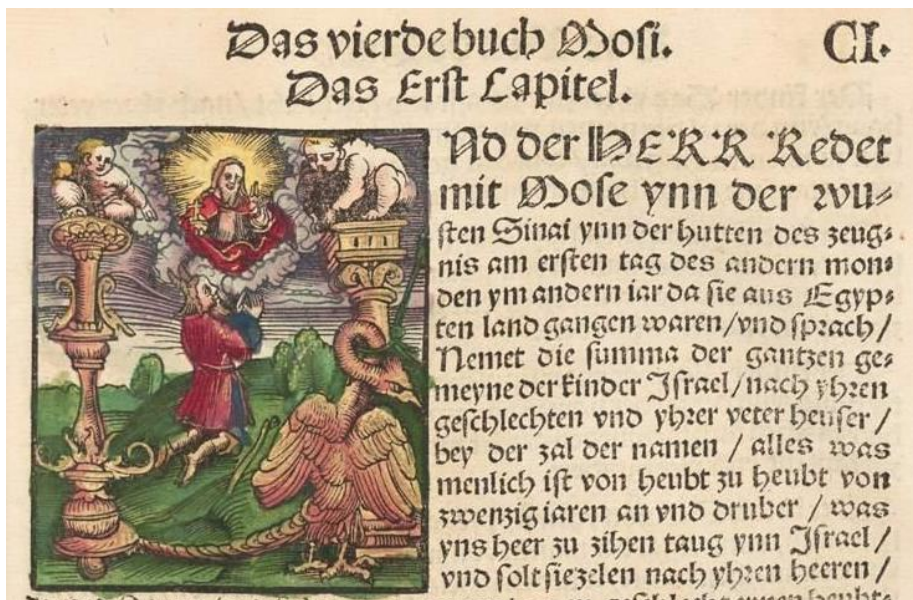 Das vierde buch Mosi. CI.
Das Erst Capitel.
ND der HERR Redet
mit Mose ynn der wu⸗
sten Sinai ynn der hutten des zeug⸗
nis am ersten tag des andern mon⸗
den ym andern iar da sie aus Egyp⸗
ten land gangen waren/vnd sprach/
Nemet die summa der gantzen ge⸗
meyne der kinder Israel/nach yhren
geschlechten vnd yhrer veter heuser/
bey der zal der namen / alles was
menlich ist von heubt zu heubt von
zwenzig iaren an vnd druber / was
yns heer zu zihen taug ynn Israel/
vnd solt sie zelen nach yhren heeren/